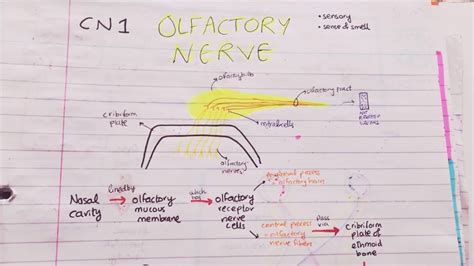 CN1
OLFACTORY
NERVE
• sensory
• sense of smell
olfactory bulb
olfactory tract
cribriform
plate
mitral cells
olfactory
nerves
Nasal
cavity
lined by
olfactory
mucous
membrane
which
has
olfactory
receptor
nerve
cells
peripheral process
- olfactory hairs
central process
- olfactory
nerve fibers
pass
via
cribriform
plate of
ethmoid
bone